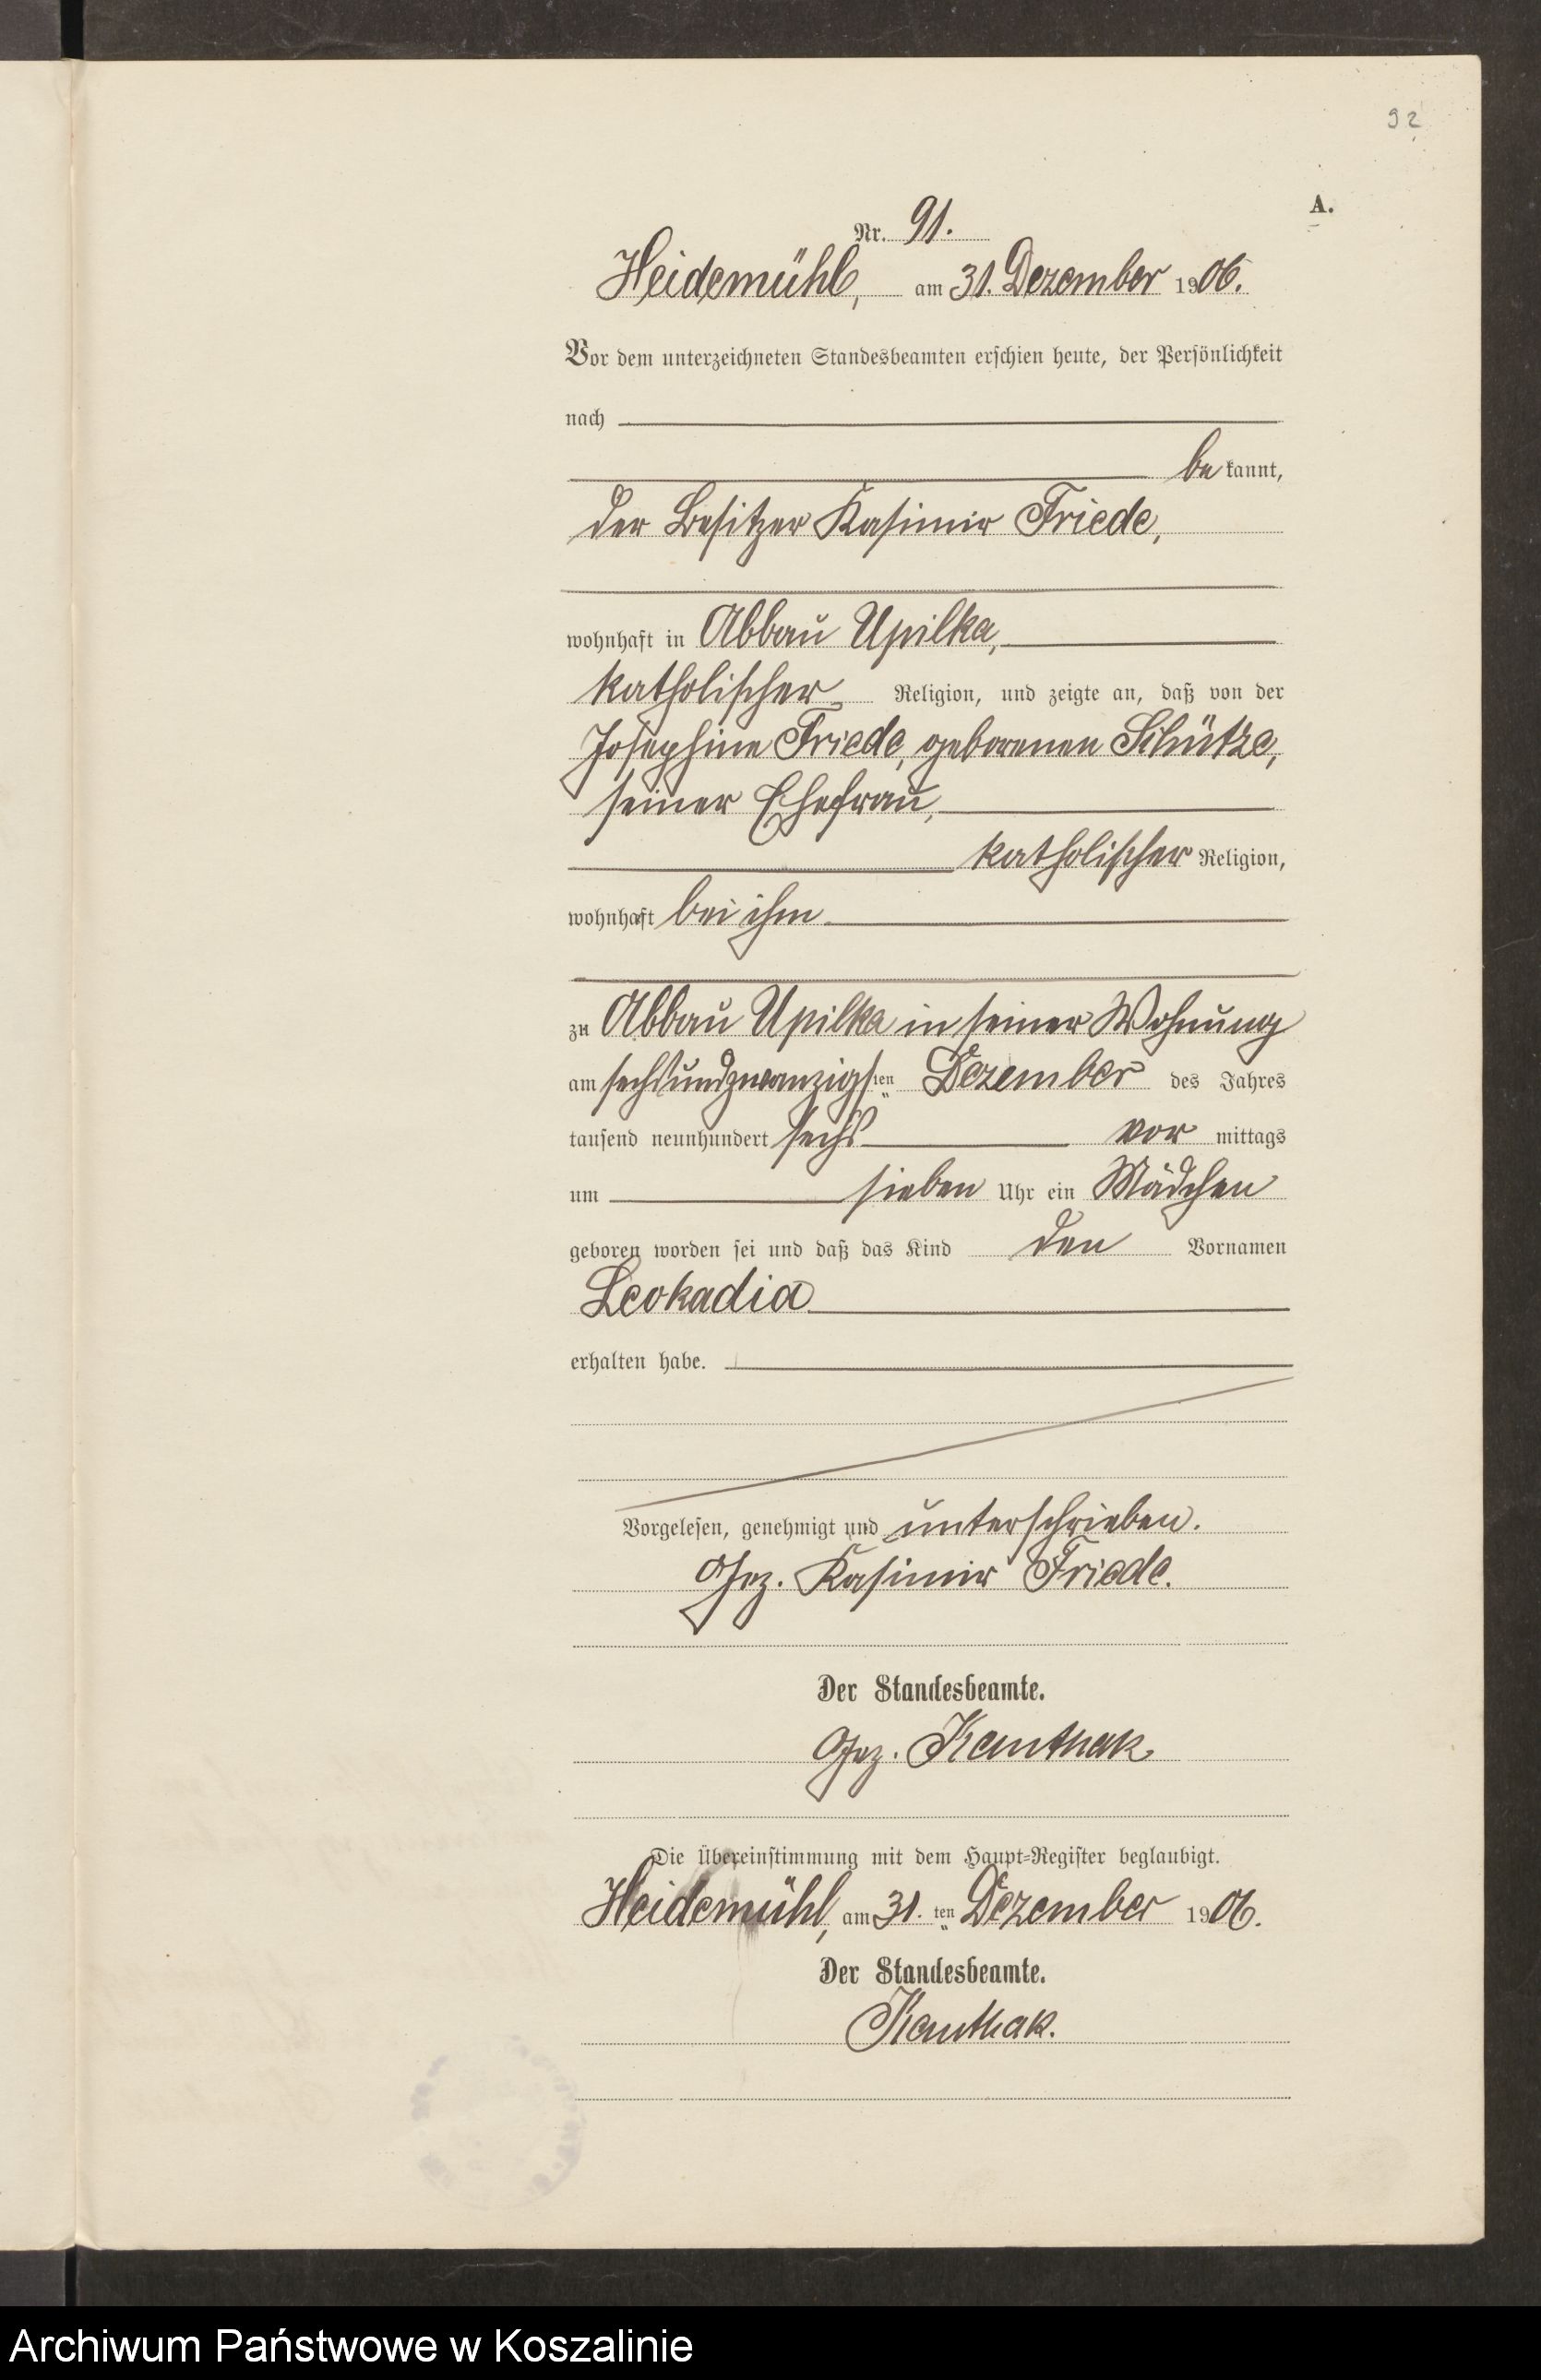 92
A.
Nr. 91.
Heidemühl, am 31. Dezember 1906.
Vor dem unterzeichneten Standesbeamten erschien heute, der Persönlichkeit
nach
be kannt,
der Besitzer Kasimir Friede,
wohnhaft in Abbau Upilka,
katholischer Religion, und zeigte an, daß von der
Josephine Friede, geborenen Schütze,
seiner Ehefrau,
katholischer Religion,
wohnhaft bei ihm
zu Abbau Upilka in seiner Wohnung
am sechsundzwanzigsten Dezember des Jahres
tausend neunhundert sechs vor mittags
um sieben Uhr ein Mädchen
geboren worden sei und daß das Kind den Vornamen
Leokadia
erhalten habe.
Vorgelesen, genehmigt und unterschrieben.
Gez. Kasimir Friede.
Der Standesbeamte.
Gez. Kanthak
Die Übereinstimmung mit dem Haupt-Register beglaubigt.
Heidemühl, am 31. ten Dezember 1906.
Der Standesbeamte.
Kanthak.
Archiwum Państwowe w Koszalinie